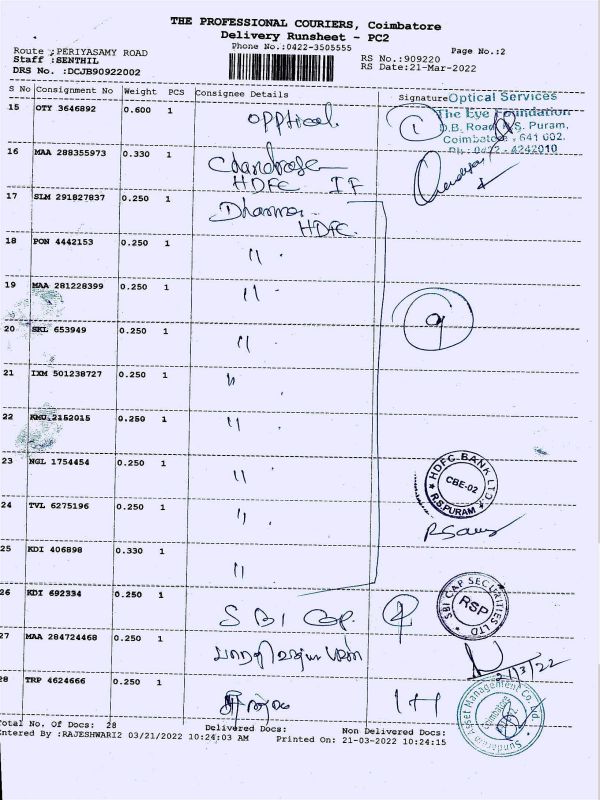 THE PROFESSIONAL COURIERS, Coimbatore
Delivery Runsheet - PC2
Phone No.:0422-3505555
Page No.:2
Route :PERIYASAMY ROAD
Staff :SENTHIL
DRS No. :DCJB90922002
RS No.:909220
RS Date:21-Mar-2022
S No Consignment No Weight PCS Consignee Details Signature
Optical Services
The Eye Foundation
D.B. Road, R.S. Puram,
Coimbatore - 641 002.
Ph : 0422 - 4242010
15 OTY 3646892 0.600 1 Opptical 1
16 MAA 288355973 0.330 1
HDFC IF
17 SLM 291827837 0.250 1 Dharma
HDFC
18 PON 4442153 0.250 1 "
19 MAA 281228399 0.250 1 "
9
20 SKL 653949 0.250 1 "
21 IXM 501238727 0.250 1 "
22 KMU 2152015 0.250 1 "
23 NGL 1754454 0.250 1 "
HDFC BANK LTD
CBE-02
R.S.PURAM
24 TVL 6275196 0.250 1 "
25 KDI 406898 0.330 1 "
26 KDI 692334 0.250 1 SBI Cap.
SBI CAP SECURITIES LTD
RSP
27 MAA 284724468 0.250 1
21/3/22
28 TRP 4624666 0.250 1
Sundaram Asset Management Co. Ltd.
Coimbatore
Total No. Of Docs: 28 Delivered Docs: Non Delivered Docs:
Entered By :RAJESHWARI2 03/21/2022 10:24:03 AM Printed On: 21-03-2022 10:24:15